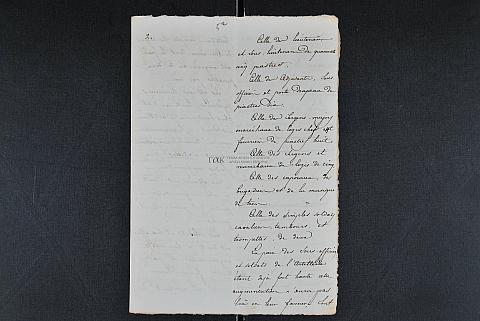 2.
5e
Celle de lieutenant
et sous lieutenant de quarante
cinq piastres.
Celle des Adjudants, sous
officier et porte Drapeau de
piastres dix.
Celle des sergens majors
marechaux de logis chef et
fourrier de piastres huit.
Celle des sergens et
marechaux de logis de cinq
Celle des caporaux, de
brigadier et de la musique
de trois.
Celle des simples soldats
cavaliers tambours, et
trompettes, de deux
La paie des sous officiers
et soldats de l'Artillerie
étant déjà fort haute elle
augmentation n'aura pas
lieu en leur faveur